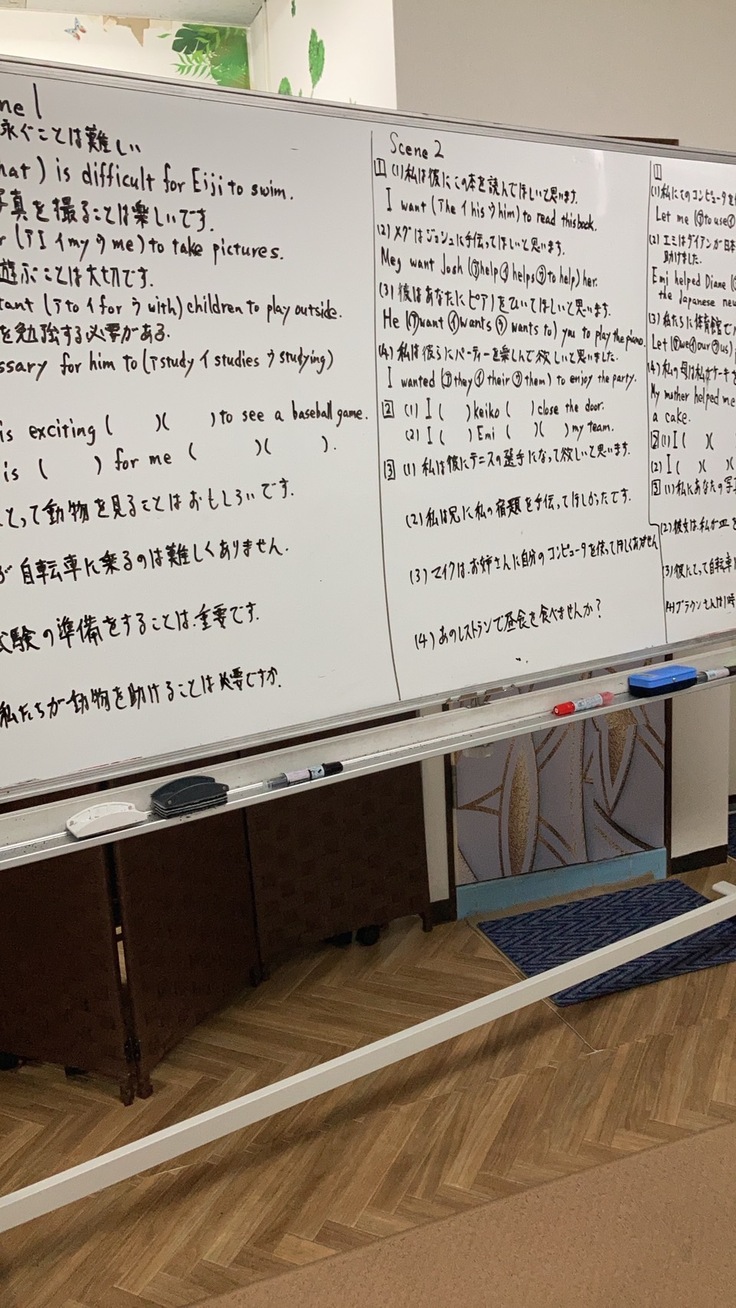 ne 1
泳ぐことは難しい
hat ) is difficult for Eiji to swim.
写真を撮ることは楽しいです。
r (ア I イ my ウ me) to take pictures.
遊ぶことは大切です。
tant (ア to イ for ウ with) children to play outside.
を勉強する必要がある.
ssary for him to (ア study イ studies ウ studying)
is exciting (    )(    ) to see a baseball game.
is (    ) for me (    )(    ).
とって動物を見ることはおもしろいです.
が自転車に乗るのは難しくありません.
試験の準備をすることは重要です.
私たちが動物を助けることは必要ですか.
Scene 2
1 (1) 私は彼にこの本を読んでほしいと思います.
I want (ア he イ his ウ him) to read this book.
(2) メグはジョシュに手伝ってほしいと思います.
Meg want Josh (ア help イ helps ウ to help) her.
(3) 彼はあなたにピアノをひいてほしいと思います.
He (ア want イ wants ウ wants to) you to play the piano.
(4) 私は彼らにパーティーを楽しんで欲しいと思いました.
I wanted (ア they イ their ウ them) to enjoy the party.
2 (1) I (    ) keiko (    ) close the door.
(2) I (    ) Emi (    )(    ) my team.
3 (1) 私は彼にテニスの選手になって欲しいと思います.
(2) 私は兄に私の宿題を手伝ってほしかったです.
(3) マイクはお姉さんに自分のコンピュータを使ってほしくありません
(4) あのレストランで昼食を食べませんか?
1
(1) 私にこのコンピュータを
Let me (ア to use イ
(2) エミはダイアンが日本
助けました.
Emi helped Diane (
the Japanese new
(3) 私たちに体育館で
Let (ア we イ our ウ us)
(4) 私の母は私がケーキを
My mother helped me
a cake.
2 (1) I (    )(
(2) I (    )(    )(
3 (1) 私にあなたの写真
(2) 彼女は私が皿を
(3) 彼にとって自転車
(4) ブラウンさんは1時